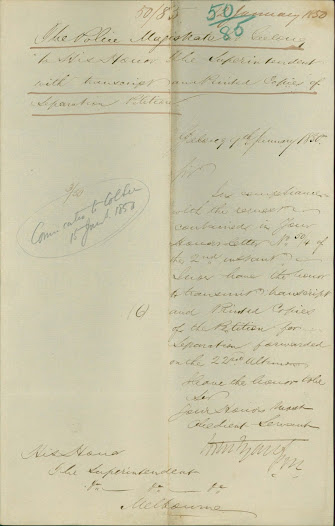 50/85
50
85
January 1850
The Police Magistrate Geelong
To His Honor The Superintendent
with transcript and Printed Copies of
Separation Petition
Geelong 7th January 1850.
Sir
In compliance
with the request
contained in Your
Honors letter No 50/4
of the 2nd instant
I now have the honor
to transmit transcript
and Printed Copies
of the Petition for
Separation forwarded
on the 22nd Ultimo
I have the honor to be
Sir
Your Honors Most
Obedient Servant
P.M
His Honor
The Superintendent
&c &c &c
Melbourne
1850